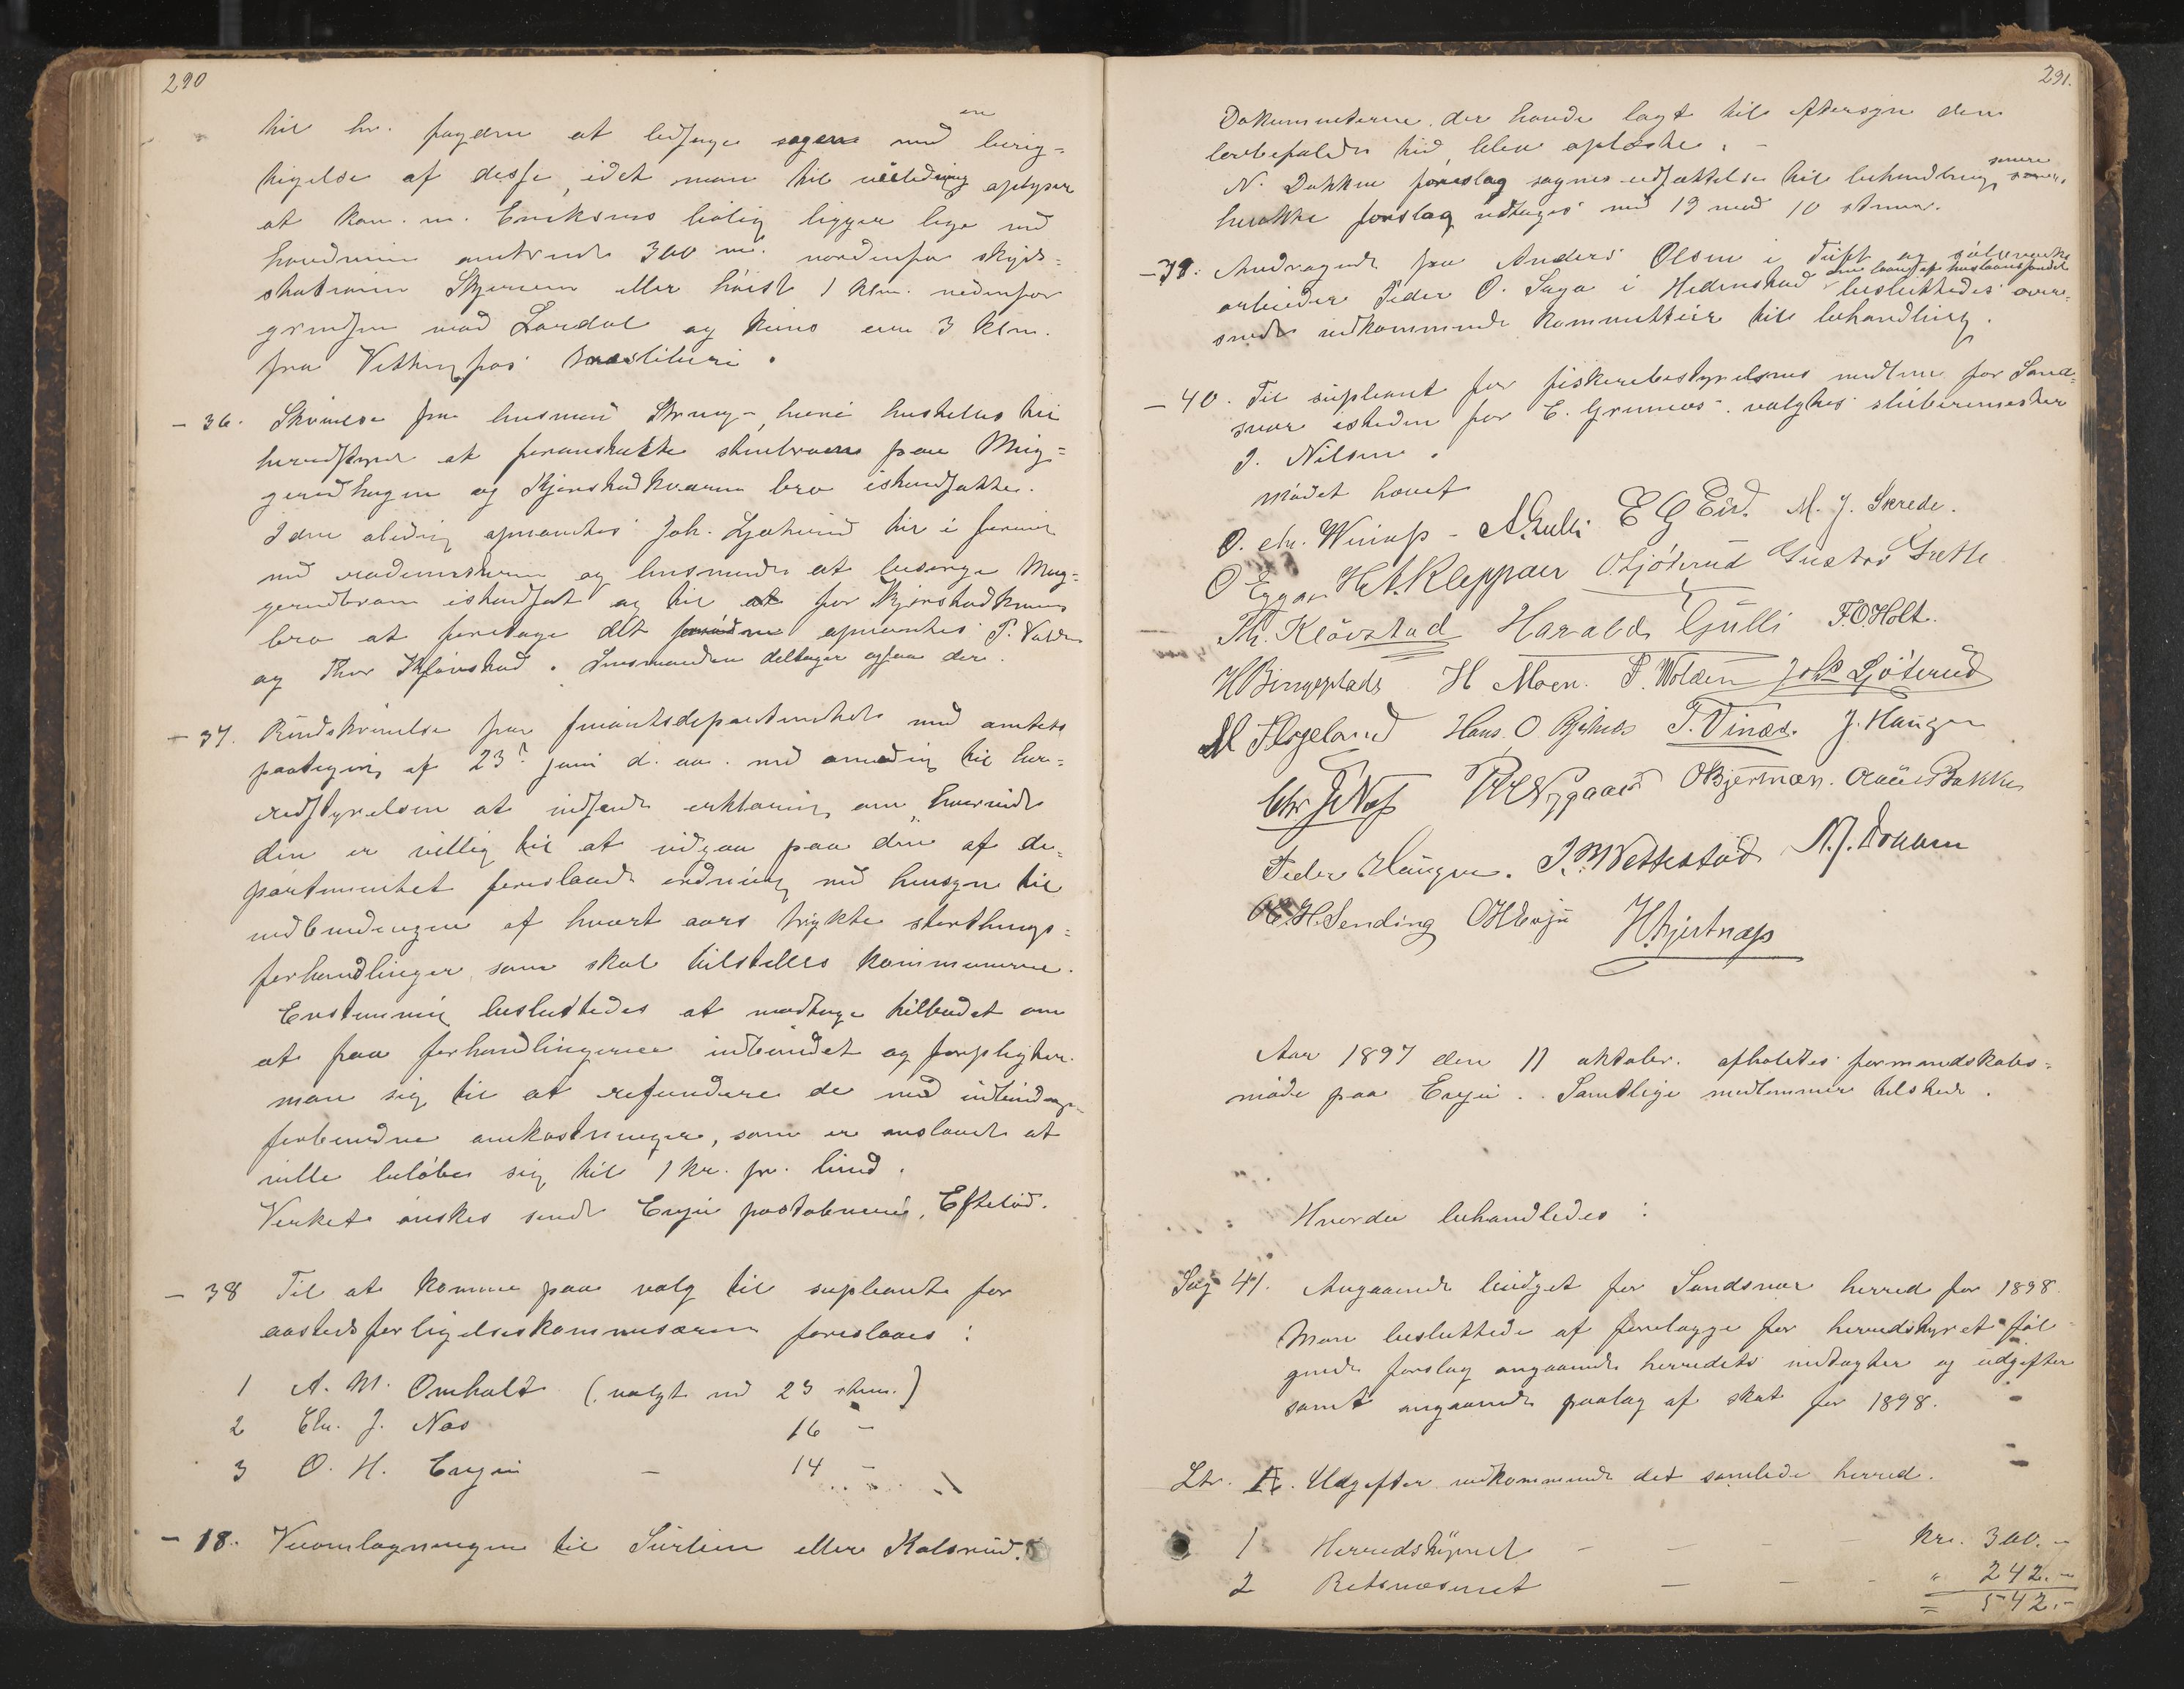 290
til hr. fogden at ledsage sagen med en berig-
tigelse af disse, idet man til veiledning oplyser
at kon. m. Eriksens bolig ligger lige ved
hovedveien omtrent 300 m. nordenfor skyds-
stationen Skjerven eller høist 1 klm. nedenfor
grændsen mod Lardal og kuns 3 klm.
fra Vittingfos træsliberi.
- 36. Skrivelse fra lensmand, hvori henstilles til
herredstyret at foranstalte paa Mug-
gerudhagen og Kjørstadkvernen bro istandsatte.
I den anledning opnævntes Joh. Ljøterud til i forening
med rodemesteren og lensmanden at besørge Mug-
gerudbroen istandsat og til at for Kjørstadkvernens
bro at foretage det opnævntes P. Volden
og Thor Kløvstad. Lensmanden deltager ogsaa der.
- 37. Rundskrivelse fra finantsdepartementet med amtets
paategning af 23 juni d. aa. med anmodning til her-
redstyrelsen at indsende erklæring om hvorvidt
den er villig til at indgaa paa den af de-
partementet foreslaaede ordning med hensyn til
indbindingen af hvert aars trykte storthings-
forhandlinger som skal tilstilles kommunerne.
Enstemmig besluttedes at modtage tilbudet om
at faa forhandlingerne indbundet og forpligter
man sig til at refundere de med indbindingen
forbundne omkostninger, som er anslaaet at
ville beløbe sig til 1 kr. pr. bind.
Verket ønskes sendt Evju postaabneri, Efteløt.
- 38 Til at komme paa valg til supleant for
aastedsforligelseskommisæren foreslaaes:
1 A. M. Omholt (valgt med 23 stem.)
2 Chr. J. Næs 16 -
3 O. H. Evju - 14 -
- 18. Veiomlægningen til Sørlien eller Kolsrud.
291.
Dokumenterne, der havde lagt til eftersyn den
lovbefalede tid, blev oplæste. -
N. Dokken foreslog sagens udsættelse til behandling senere
hvilke forslag vedtages med 19 mod 10 stemmer.
- 39. Andragende fra Anders Olsen i Tuft og sølvverks-
arbeider Peder O. Saga i Hedenstad om laan af huslaansfondet besluttedes over-
sendt vedkommende kommitteer til behandling.
- 40. Til supleant for fiskeribestyrelsens medlem for Sand-
svær isteden for E. Grinnæs valgtes sliberimester
J. Nilsen.
Mødet hævet
O. Chr. Winnæs - A. Gulli E G Eid. M. J. Skrede.
O Eggar H.A. Kleppan O. Ljøterud Gustav Grette
Th. Kløvstad Harald Gulli F. O. Holt.
H Bingeplads H Moen. P. Wolden Joh Ljøterud
M Flogeland Hans O T. Vinæs. J. Haugen
Chr J Næs P Nygaard O Bjertnæs. Bakken
Peder Haugen. J. M Vettestad N. J. Dokken
O. H. Sending O H Evju H. Hjertnæs
Aar 1897 den 11 oktober afholdtes formandskabs-
møde paa Evju. Samtlige medlemmer tilstede.
Hvorder behandledes:
Sag 41. Angaaende budget for Sandsvær herred for 1898.
Man besluttede at forelægge for herredstyret føl-
gende forslag angaaende herredets indtægter og udgifter
samt angaaende paalæg af skat for 1898.
Ltr. A. Udgifter vedkommende det samlede herred.
1 Herredstyret - - - kr. 300. -
2 Retsvæsenet - - - " 242. -
= 542. -